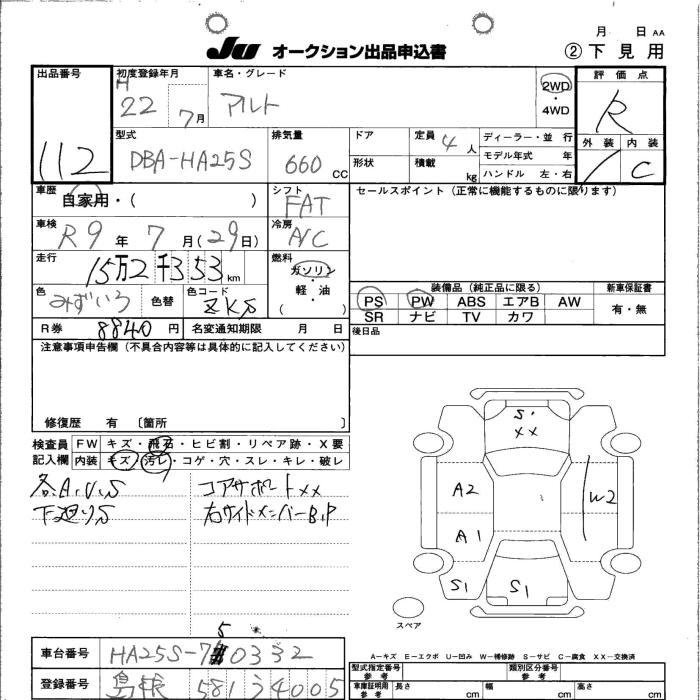 月　日 AA
JU オークション出品申込書
② 下見用
出品番号
112
初度登録年月
H 22 7月
車名・グレード
アルト
2WD・4WD
評価点
R
型式
DBA-HA25S
排気量
660 CC
ドア
形状
定員 4人
積載 kg
ディーラー・並行
モデル年式　年
ハンドル　左・右
外装 1
内装 C
車歴
自家用・(　)
シフト
FAT
セールスポイント（正常に機能するものに限ります）
車検
R9年 7月(29日)
冷房
A/C
走行
15万2千353 km
燃料
ガソリン
軽・油
(　)
色
みずいろ
色替
色コード
ZKS
装備品（純正品に限る）
PS PW ABS エアB AW
SR ナビ TV カワ
新車保証書
有・無
R券 8840円
名変通知期限　月　日
後日品
注意事項申告欄（不具合内容等は具体的に記入してください）
修復歴　有〔箇所　〕
検査員記入欄
FW キズ・飛石・ヒビ割・リペア跡・X要
内装 キズ・汚レ・コゲ・穴・スレ・キレ・破レ
各.A.U.S
下廻りS
コアサポートXX
右サイドメンバーB.P
S・
XX
A2
A1
W2
S1
S1
スペア
A－キズ E－エクボ U－凹み W－補修跡 S－サビ C－腐食 XX－交換済
車台番号
HA25S-7
5
0332
登録番号
島根 581 34005
型式指定番号
参考
類別区分番号
参考
車庫証明用
参考
長さ cm
幅 cm
高さ cm